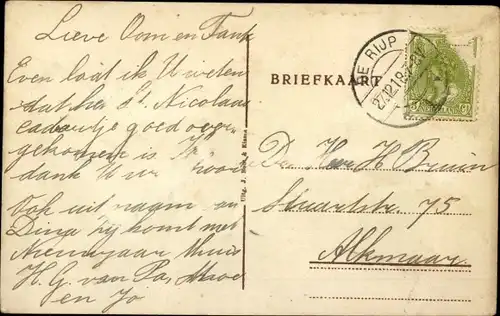 Lieve Oom en Tante
Even laat ik U weten
dat het St. Nicolaas
cadeautje goed over
gekomen is
dank U voor
Ook uit naam
Dina zij komt met
Nieuwjaar thuis
H. G. van Pa, Moe
en Jo
BRIEFKAART
DE RIJP
27.12.18
De Heer H Bruin
Stuartstr. 75
Alkmaar.